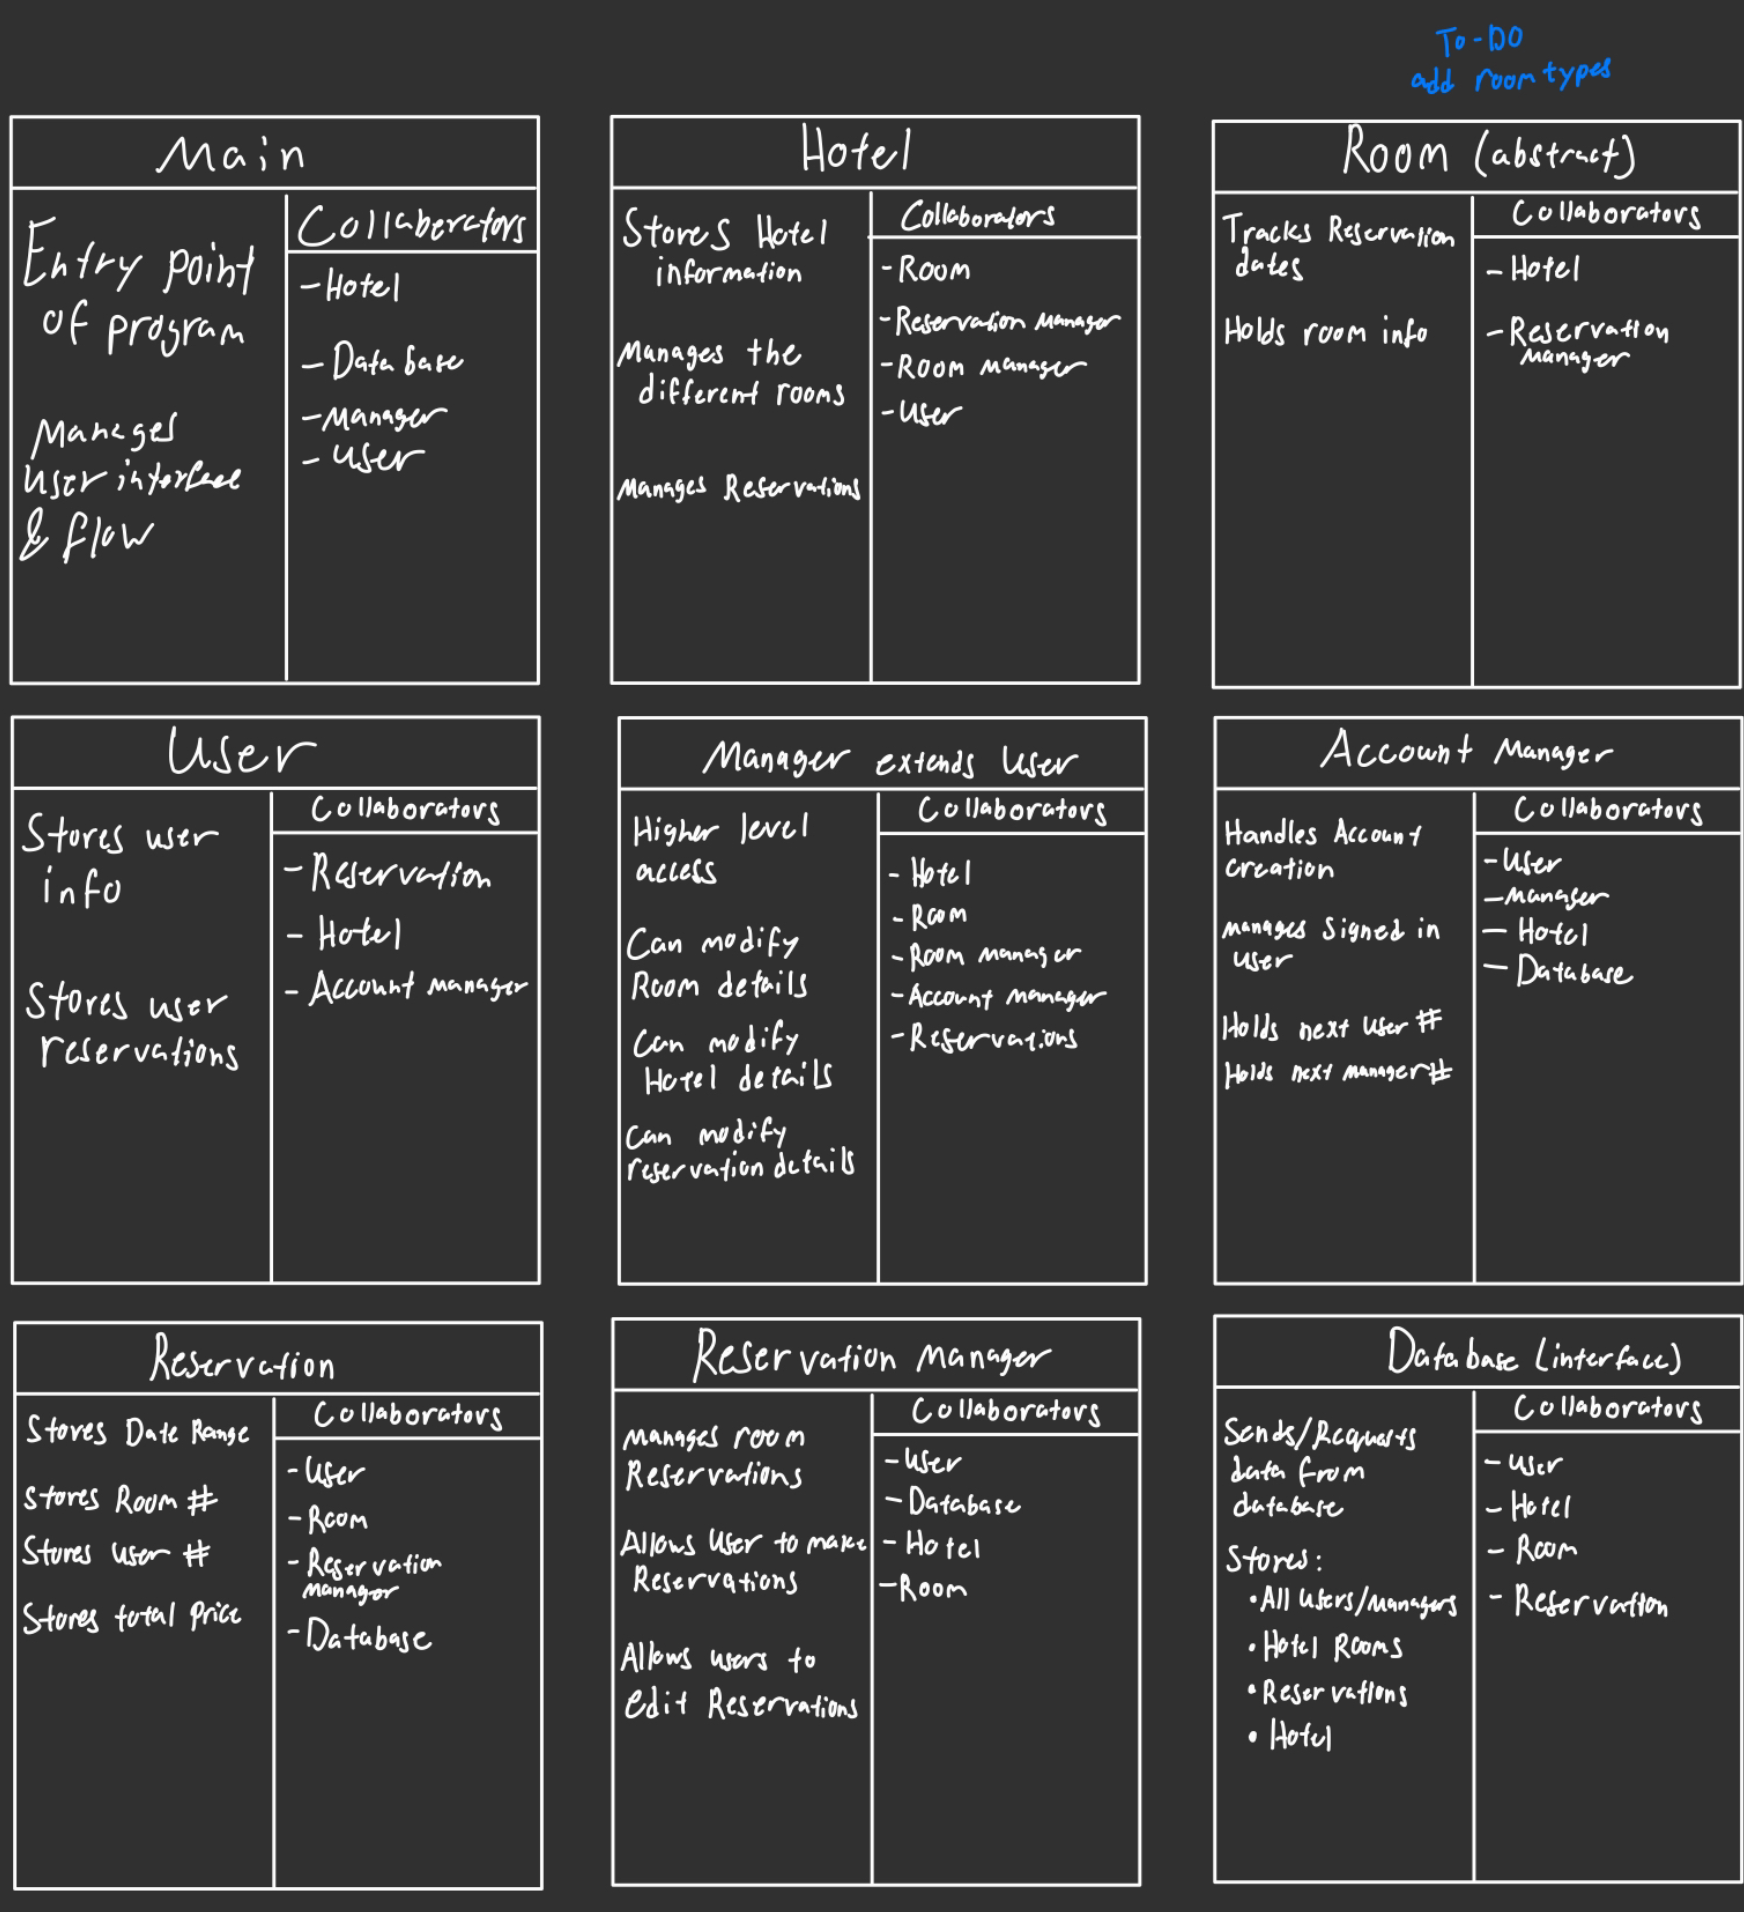 To-DO
add room types
Main
Entry point
of program
Manages
User interface
& flow
Collaborators
-Hotel
- Data base
-Manager
- User
Hotel
Stores Hotel
information
Manages the
different rooms
Manages Reservations
Collaborators
-Room
-Reservation Manager
-Room Manager
-User
Room (abstract)
Tracks Reservation
dates
Holds room info
Collaborators
-Hotel
-Reservation
Manager
User
Stores user
info
Stores user
reservations
Collaborators
-Reservation
- Hotel
- Account Manager
Manager extends User
Higher level
access
Can modify
Room details
Can modify
Hotel details
Can modify
reservation details
Collaborators
- Hotel
- Room
-Room manager
-Account Manager
-Reservations
Account Manager
Handles Account
creation
manages Signed in
user
Holds next User #
Holds next manager#
Collaborators
-User
-Manager
- Hotel
- Database
Reservation
Stores Date Range
Stores Room #
Stores User #
Stores total Price
Collaborators
-User
-Room
-Reservation
Manager
-Database
Reservation Manager
Manages room
Reservations
Allows User to make
Reservations
Allows users to
edit Reservations
Collaborators
-User
-Database
-Hotel
-Room
Database (interface)
Sends/Requests
data from
database
Stores:
•All Users/Managers
•Hotel Rooms
•Reservations
• Hotel
Collaborators
-User
-Hotel
- Room
- Reservation